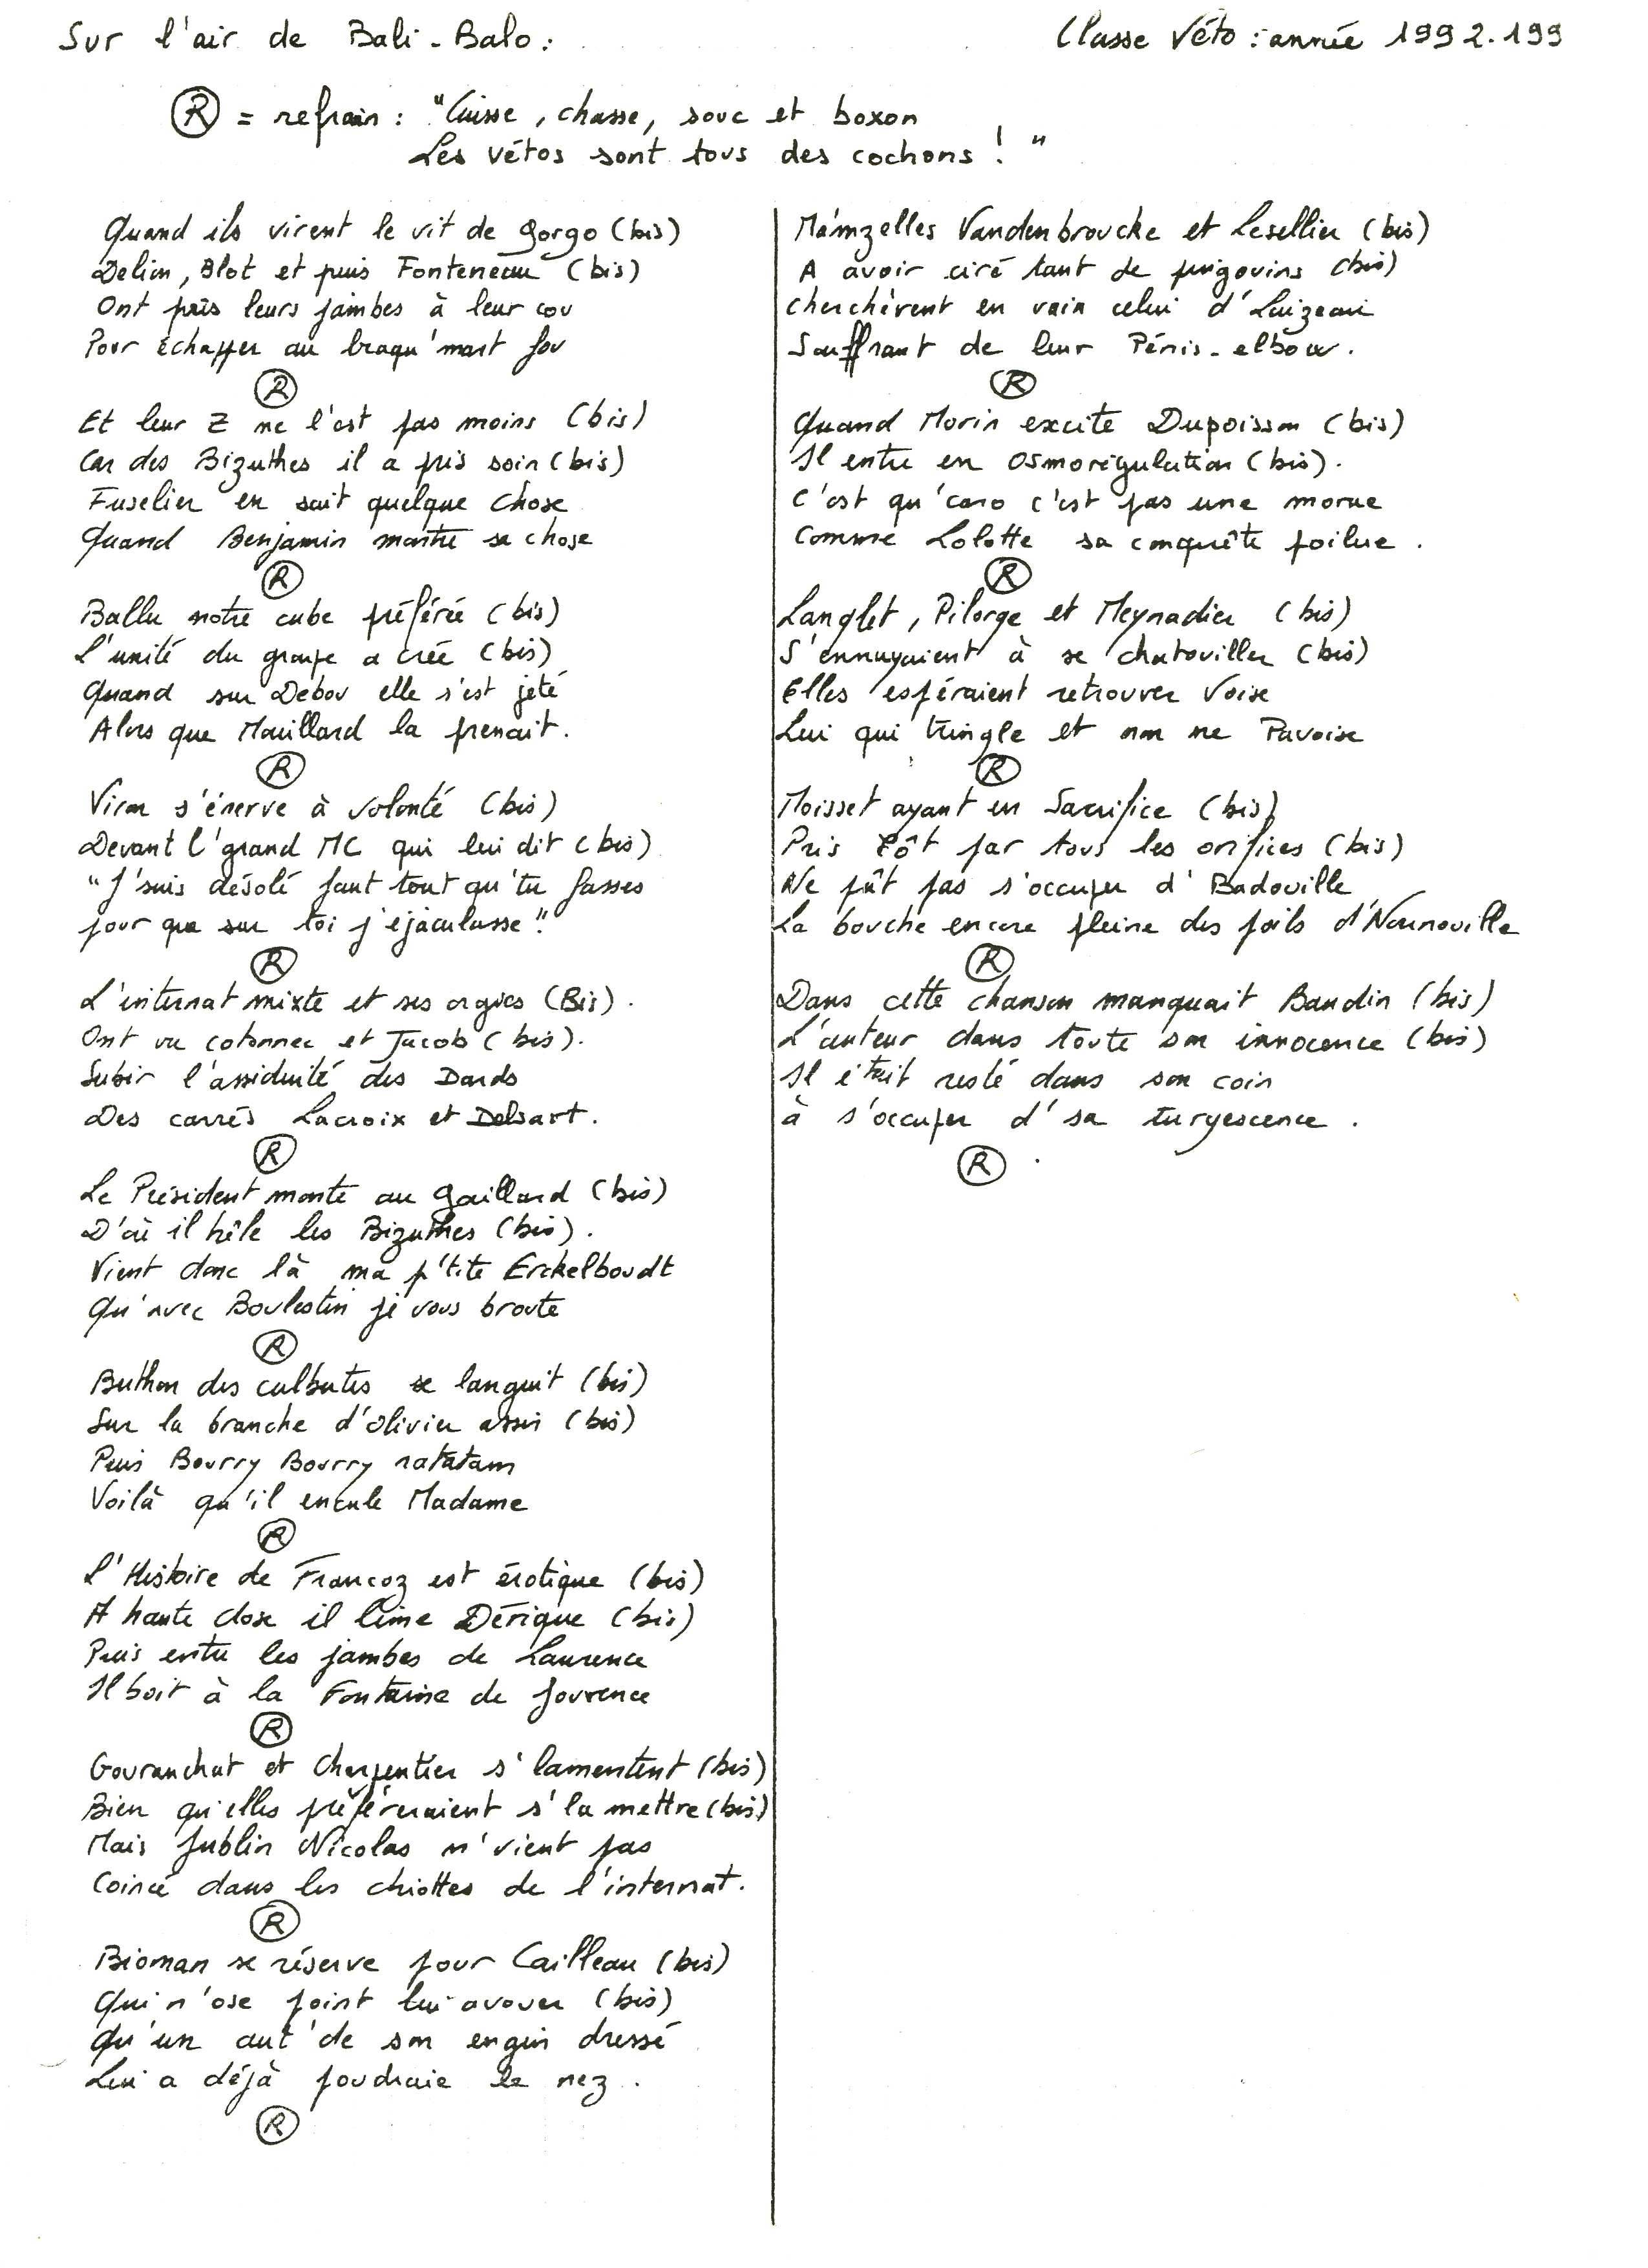 Sur l'air de Bali-Balo :
Classe Véto : année 1992.199
Ⓡ = refrain : "Cuisse, chasse, souc et boxon
Les vétos sont tous des cochons ! "
Quand ils virent le vit de Gorgo (bis)
Delion, Blot et puis Fonteneau (bis)
Ont pris leurs jambes à leur cou
Pour échapper au braqu'mart fou
Ⓡ
Et leur Z ne l'est pas moins (bis)
Car des Bizuthes il a pris soin (bis)
Fuselier en sait quelque chose
Quand Benjamin montre sa chose
Ⓡ
Ballu notre cube préférée (bis)
L'unité du groupe a créé (bis)
Quand sur Debov elle s'est jeté
Alors que Mouillard la prenait.
Ⓡ
Viron s'énerve à volonté (bis)
Devant l'grand MC qui lui dit (bis)
"J'suis désolé faut tout qu'tu fasses
pour que sur toi j'éjaculasse".
Ⓡ
L'internat mixte et ses orgies (Bis).
Ont vu cotonnec et Jacob (bis).
Subir l'assiduité des Dards
Des carrés Lacroix et Delsart.
Ⓡ
Le Président monte au gaillard (bis)
D'où il hêle les Bizuthes (bis).
Vient donc là ma p'tite Erckelboudt
Qu'avec Boulestin je vous broute
Ⓡ
Buthon des culbutes se languit (bis)
Sur la branche d'olivier assis (bis)
Puis Bourry Bourry ratatam
Voilà qu'il encule Madame
Ⓡ
L'Histoire de Francoz est érotique (bis)
A haute dose il lime Dérique (bis)
Puis entre les jambes de Laurence
Il boit à la Fontaine de Jouvence
Ⓡ
Gouranchat et Charpentier s'lamentent (bis)
Bien qu'elles préféreraient s'la mettre (bis)
Mais Jublin Nicolas n'vient pas
Coincé dans les chiottes de l'internat.
Ⓡ
Bioman se réserve pour Cailleau (bis)
Qui n'ose point lui avouer (bis)
Qu'un aut'de son engin dressé
Lui a déjà poudraie le nez.
Ⓡ
Mamzelles Vandenbroucke et Lesellier (bis)
A avoir ciré tant de pingouins (bis)
Cherchèrent en vain celui d'Loizeau
Souffrant de leur Pénis-elbow.
Ⓡ
Quand Morin excite Dupoisson (bis)
Il entre en osmorégulation (bis).
C'est qu'caro c'est pas une morue
Comme Lolotte sa conquête poilue.
Ⓡ
Langlet, Pilorge et Meynadier (bis)
S'ennuyaient à se chatouiller (bis)
Elles espéraient retrouver Voise
Lui qui tringle et non ne Pavoise
Ⓡ
Moisset ayant en Sacrifice (bis)
Pris tôt par tous les orifices (bis)
Ne pût pas s'occuper d'Badouille
La bouche encore pleine des poils d'Nounouille
Ⓡ
Dans cette chanson manquait Baudin (bis)
L'auteur dans toute son innocence (bis)
Il était resté dans son coin
à s'occuper d'sa turgescence.
Ⓡ